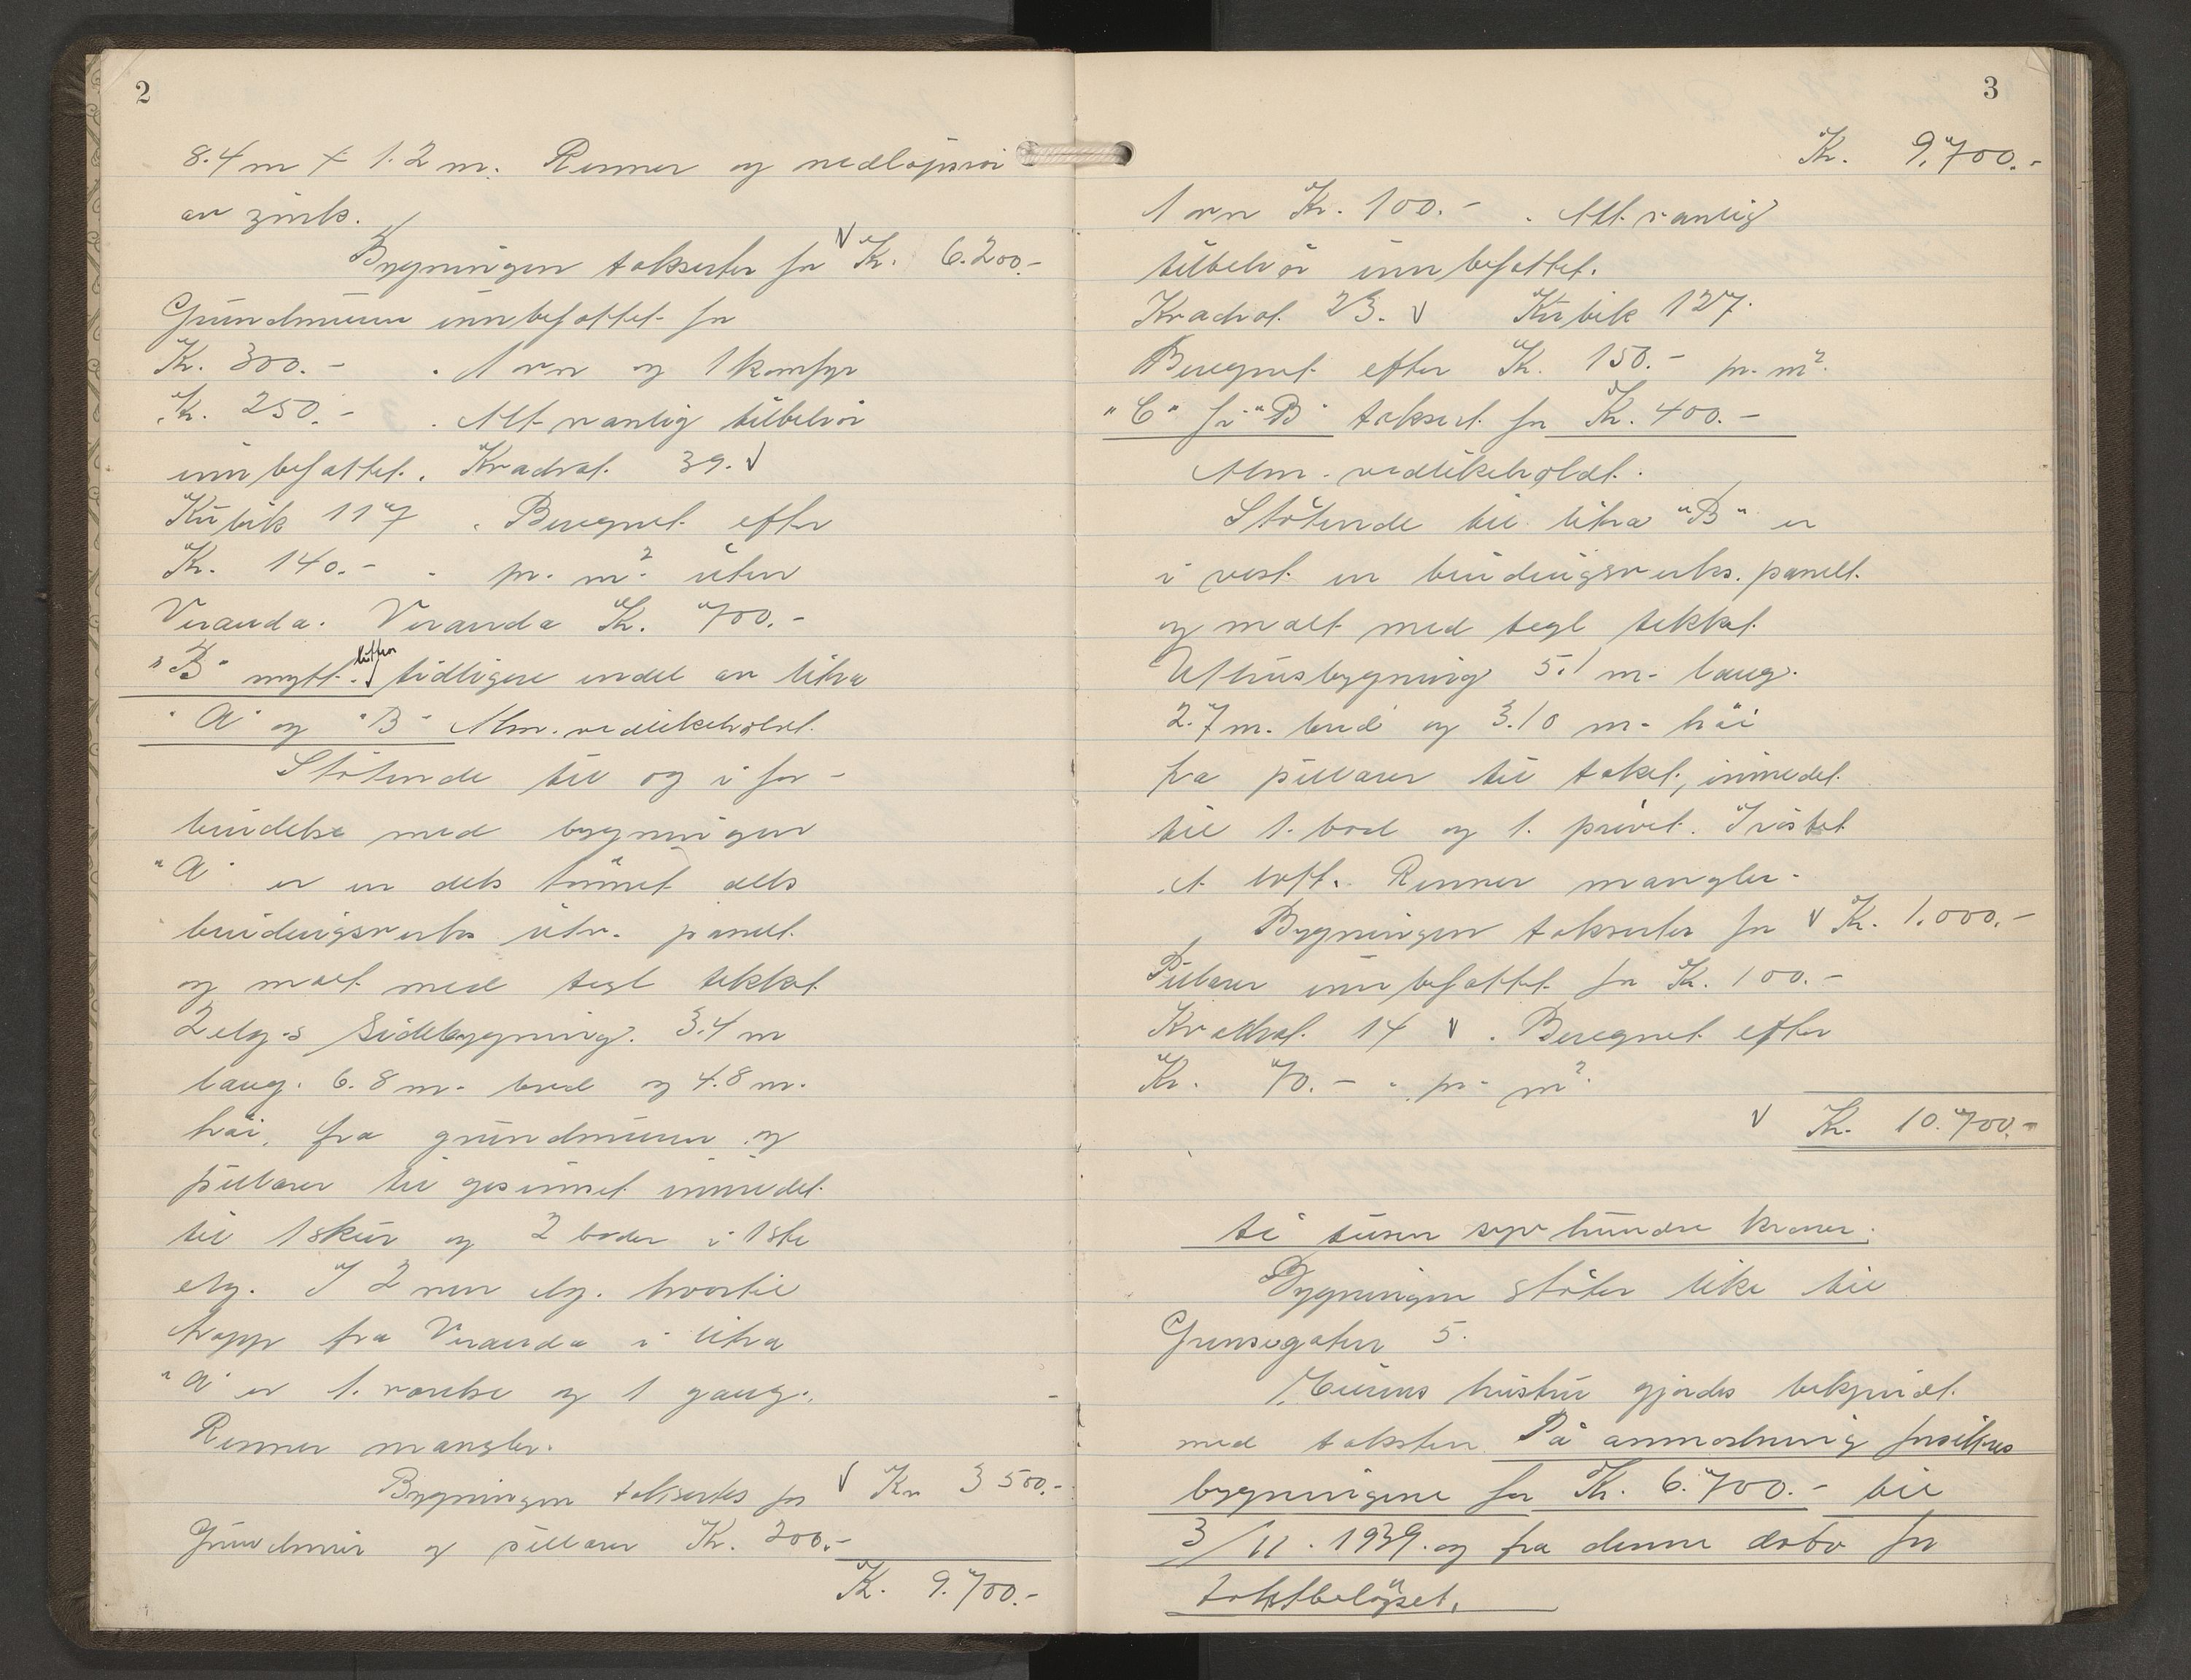 2
8.4 m + 1.2 m. Renner og nedløpsrør
av zink.
Bygningen takserter for Kr. 6.200.-
Grundmuren innbefattet for
Kr. 300.- . 1 ovn og 1 komfyr
Kr. 250.- . Alt vanlig tilbehör
innbefattet. Kvadrat. 39.
Kubik 117 . Beregnet efter
Kr. 140.- . pr. m² uten
Veranda. Veranda Kr. 700.-
"B" nytt littra tidligere endel av litra
"A" og "B" Alm. vedlikeholdt.
Stötende til og i for-
bindelse med bygningen
"A" er en dels tömret dels
bindingsverks utv. panelt
og malt med tegl tekket
2 etg.s Sidebygning. 3.4 m
lang. 6.8 m. bred og 4.8 m.
höi, fra grundmuren og
pillarer til gesimset innredet
til 1 skur og 2 boder i 1ste
etg. I 2 nen etg. hvortil
trapp fra Veranda i litra
"A" er 1. værelse og 1 gang.
Renner mangler.
Bygningen taksertes for Kr 3500.-
Grundmur og pillarer Kr. 200.-
Kr. 9.700.-
3
Kr. 9.700.-
1 ovn Kr. 100.- . Alt vanlig
tilbehör innbefattet.
Kvadrat 23. Kubik 127.
Beregnet efter Kr. 150.- pr. m².
"C" för "B" taksert for Kr. 400.-
Alm. vedlikeholdt.
Stötende til litra "B" er
i vest en bindingsverks. panelt.
og malt med tegl tekket
Uthusbygning 5.1 m. lang.
2.7 m. bred og 3.10 m. höi
fra pillarer til taket, innredet
til 1. bod og 1. privet. Iröstet
et loft. Renner mangler.
Bygningen takserter for Kr. 1.000.-
Pillarer innbefattet for Kr. 100.-
Kvadrat. 14 . Beregnet efter
Kr. 70.- . pr. m².
Kr. 10.700.-
ti tusen syv hundre kroner.
Bygningen stöter like til
Grensegaten 5.
Eierens hustru gjordes bekjendt.
med taksten. På anmodning forsikres
bygningene for Kr. 6.700.- til
3/11. 1939. og fra denne dato for
takstbelöpet.